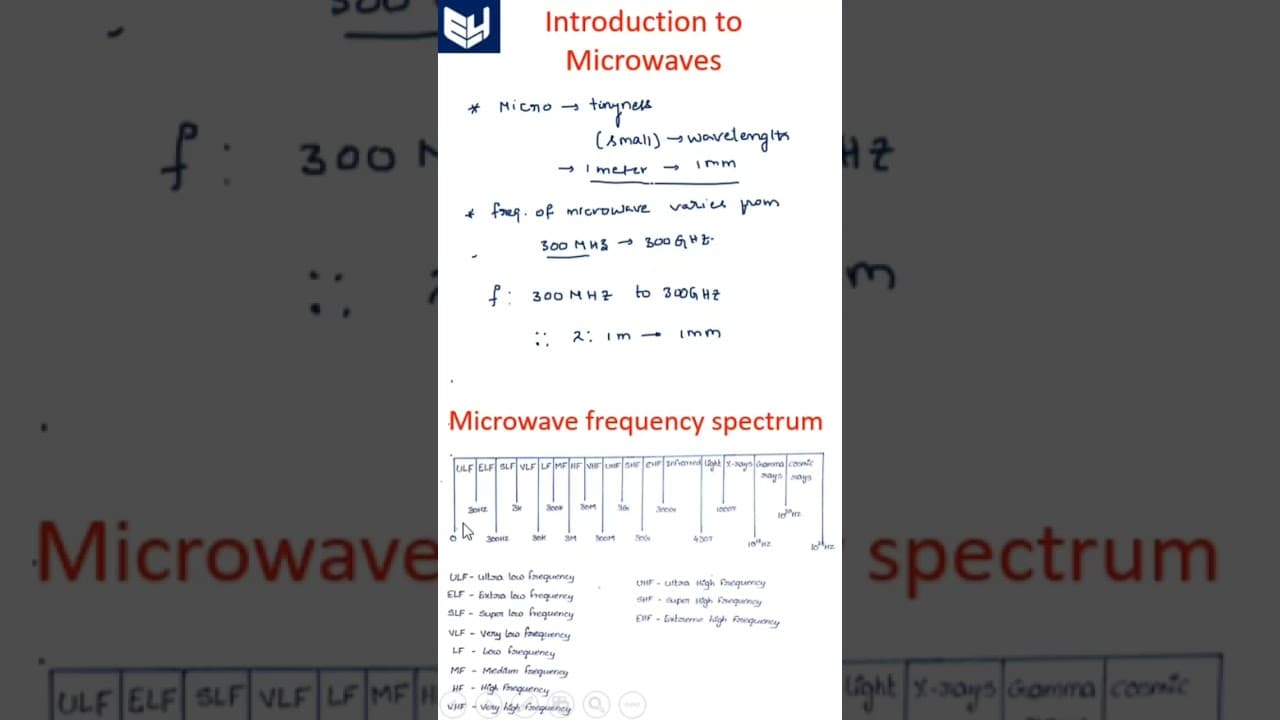 EY
Introduction to
Microwaves
* Micro → tinyness
(small) → wavelength
→ 1 meter → 1mm
* freq. of microwave varies from
300 MHz → 300 GHz.
f: 300 MHZ to 300GHZ
∴ λ: 1m → 1mm
Microwave frequency spectrum
ULF ELF SLF VLF LF MF HF VHF UHF SHF EHF Infrared light X-rays Gamma rays cosmic rays
30HZ 3K 300K 30M 3G 300G 1000T 10²⁰HZ
0 300HZ 30K 3M 300M 30G 430T
ULF - ultra low frequency
ELF - Extra low frequency
SLF - Super low frequency
VLF - Very low frequency
LF - Low frequency
MF - Medium frequency
HF - High frequency
VHF - Very high frequency
UHF - Ultra High Frequency
SHF - Super High Frequency
EHF - Extreme high Frequency